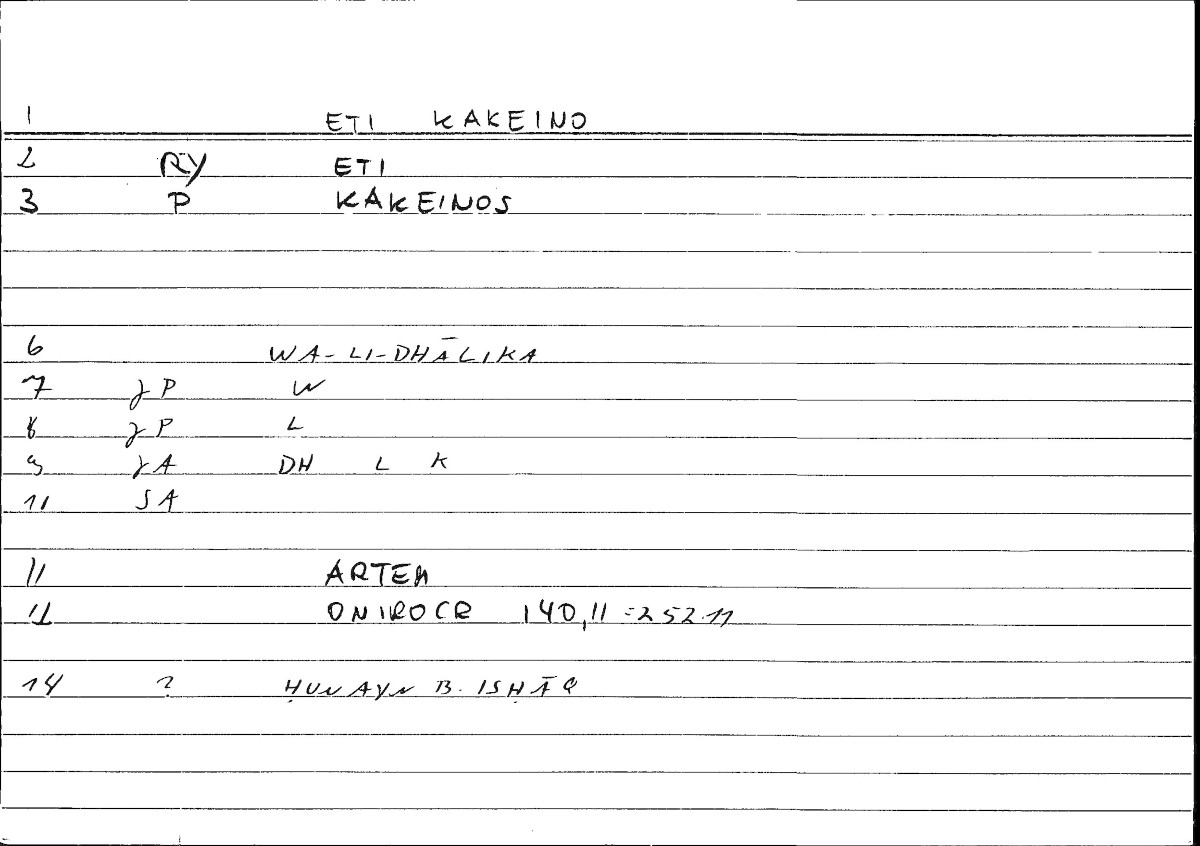 1 ETI KAKEINO
2 RY ETI
3 P KAKEINOS
6 WA-LI-DHĀLIKA
7 γP W
8 γP L
9 γA DH L K
10 SA
11 ARTEM
12 ONIROCR 140,11 = 252.11
14 ? ḤUNAYN B. ISḤĀQ